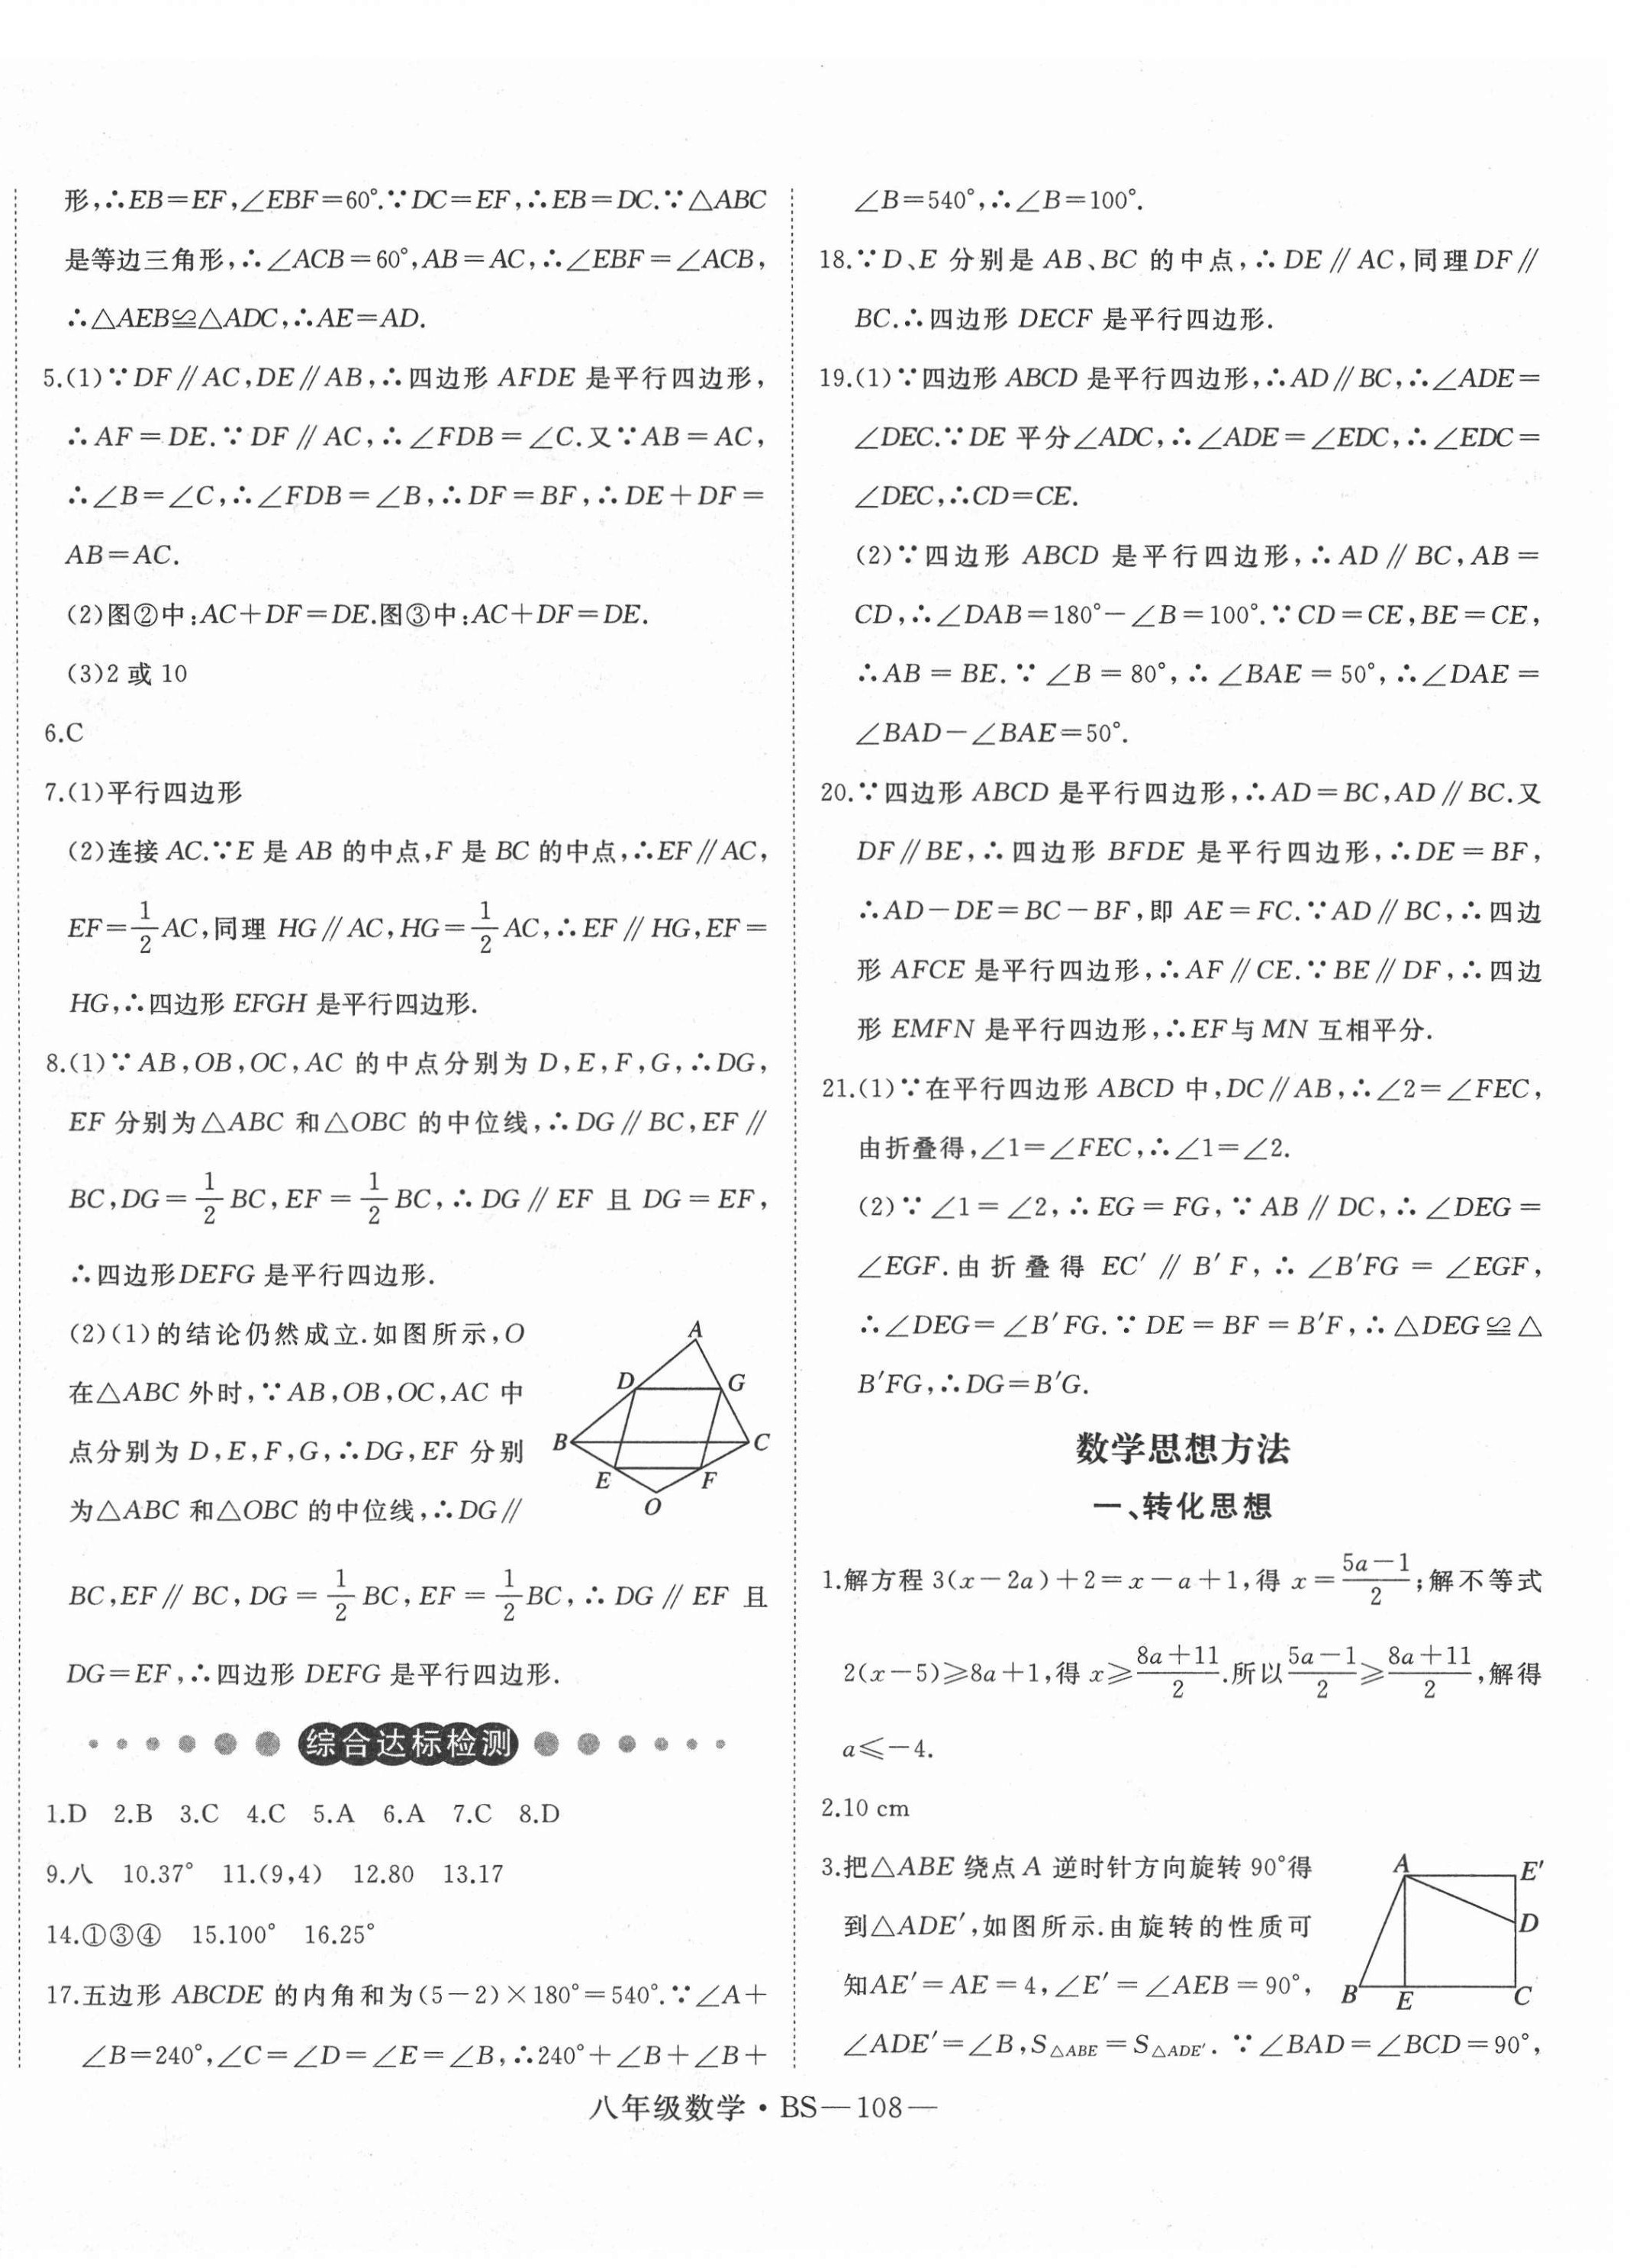 形,∴EB=EF,∠EBF=60°.∵DC=EF,∴EB=DC.∵△ABC
是等边三角形,∴∠ACB=60°,AB=AC,∴∠EBF=∠ACB,
∴△AEB≌△ADC,∴AE=AD.
5.(1)∵DF∥AC,DE∥AB,∴四边形 AFDE 是平行四边形,
∴AF=DE.∵DF∥AC,∴∠FDB=∠C.又∵AB=AC,
∴∠B=∠C,∴∠FDB=∠B,∴DF=BF,∴DE+DF=
AB=AC.
(2)图②中:AC+DF=DE.图③中:AC+DF=DE.
(3)2 或 10
6.C
7.(1)平行四边形
(2)连接 AC.∵E 是 AB 的中点,F 是 BC 的中点,∴EF∥AC,
EF=1/2 AC,同理 HG∥AC,HG=1/2 AC,∴EF∥HG,EF=
HG,∴四边形 EFGH 是平行四边形.
8.(1)∵AB,OB,OC,AC 的中点分别为 D,E,F,G,∴DG,
EF 分别为△ABC 和△OBC 的中位线,∴DG∥BC,EF∥
BC,DG=1/2 BC,EF=1/2 BC,∴DG∥EF 且 DG=EF,
∴四边形DEFG 是平行四边形.
(2)(1)的结论仍然成立.如图所示,O
在△ABC 外时,∵AB,OB,OC,AC 中
点分别为 D,E,F,G,∴DG,EF 分别
为△ABC 和△OBC 的中位线,∴DG∥
A
D G
B C
E F
O
BC,EF∥BC,DG=1/2 BC,EF=1/2 BC,∴DG∥EF 且
DG=EF,∴四边形 DEFG 是平行四边形.
综合达标检测
1.D 2.B 3.C 4.C 5.A 6.A 7.C 8.D
9.八 10.37° 11.(9,4) 12.80 13.17
14.①③④ 15.100° 16.25°
17.五边形 ABCDE 的内角和为(5-2)×180°=540°.∵∠A+
∠B=240°,∠C=∠D=∠E=∠B,∴240°+∠B+∠B+
∠B=540°,∴∠B=100°.
18.∵D、E 分别是 AB、BC 的中点,∴DE∥AC,同理DF∥
BC.∴四边形 DECF 是平行四边形.
19.(1)∵四边形 ABCD 是平行四边形,∴AD∥BC,∴∠ADE=
∠DEC.∵DE 平分∠ADC,∴∠ADE=∠EDC,∴∠EDC=
∠DEC,∴CD=CE.
(2)∵四边形 ABCD 是平行四边形,∴AD∥BC,AB=
CD,∴∠DAB=180°-∠B=100°.∵CD=CE,BE=CE,
∴AB=BE.∵∠B=80°,∴∠BAE=50°,∴∠DAE=
∠BAD-∠BAE=50°.
20.∵四边形 ABCD 是平行四边形,∴AD=BC,AD∥BC.又
DF∥BE,∴四边形 BFDE 是平行四边形,∴DE=BF,
∴AD-DE=BC-BF,即 AE=FC.∵AD∥BC,∴四边
形 AFCE 是平行四边形,∴AF∥CE.∵BE∥DF,∴四边
形 EMFN 是平行四边形,∴EF与 MN 互相平分.
21.(1)∵在平行四边形 ABCD 中,DC∥AB,∴∠2=∠FEC,
由折叠得,∠1=∠FEC,∴∠1=∠2.
(2)∵∠1=∠2,∴EG=FG,∵AB∥DC,∴∠DEG=
∠EGF.由折叠得 EC′∥B′F,∴∠B′FG=∠EGF,
∴∠DEG=∠B′FG.∵DE=BF=B′F,∴△DEG≌△
B′FG,∴DG=B′G.
数学思想方法
一、转化思想
1.解方程 3(x-2a)+2=x-a+1,得 x=(5a-1)/2;解不等式
2(x-5)≥8a+1,得 x≥(8a+11)/2.所以(5a-1)/2≥(8a+11)/2,解得
a≤-4.
2.10 cm
3.把△ABE 绕点 A 逆时针方向旋转 90°得
到△ADE′,如图所示.由旋转的性质可
知AE′=AE=4,∠E′=∠AEB=90°,
A E′
D
B E C
∠ADE′=∠B,S△ABE=S△ADE′.∵∠BAD=∠BCD=90°,
八年级数学·BS—108—